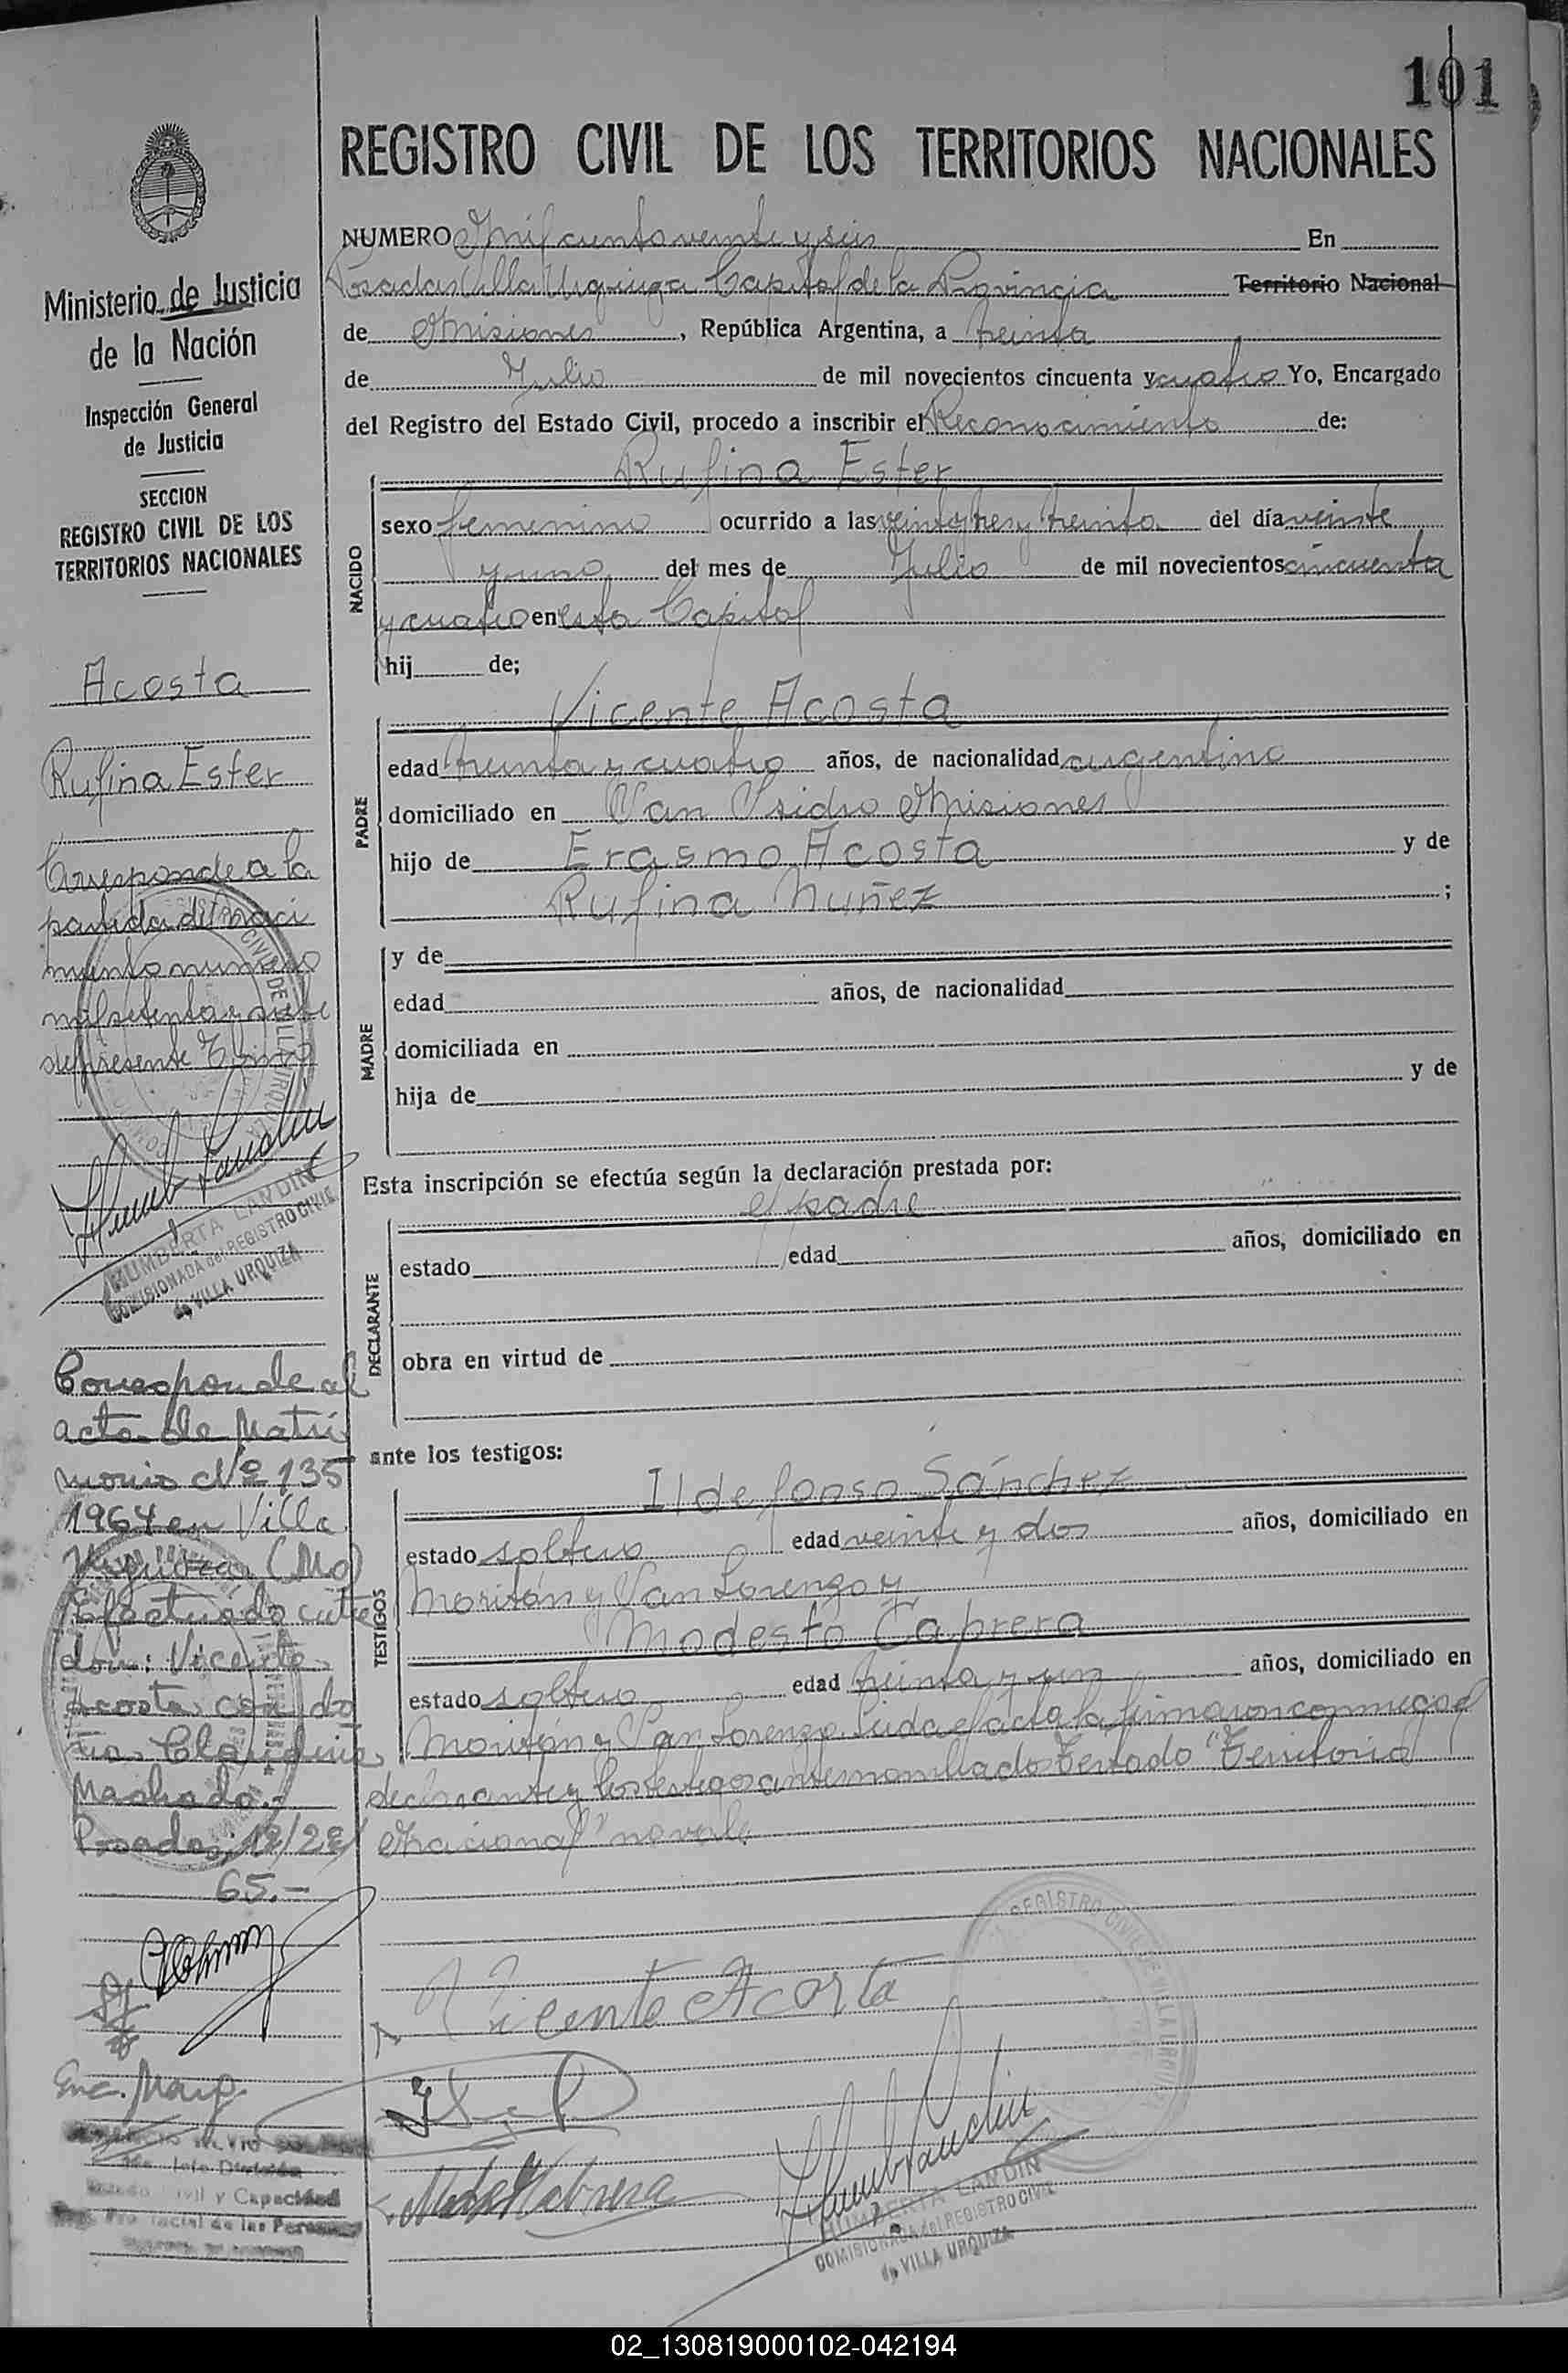 101
REGISTRO CIVIL DE LOS TERRITORIOS NACIONALES
NUMERO Mil ciento veinte y seis En
Posadas Villa Urquiza Capital de la Provincia Territorio Nacional
de Misiones, República Argentina, a treinta
de Julio de mil novecientos cincuenta y cuatro Yo, Encargado
del Registro del Estado Civil, procedo a inscribir el Reconocimiento de:
NACIDO
Rufina Ester
sexo femenino ocurrido a las veintytres y treinta del día veinte
y uno del mes de Julio de mil novecientos cincuenta
y cuatro en esta Capital
hij de;
PADRE
Vicente Acosta
edad treinta y cuatro años, de nacionalidad argentino
domiciliado en San Isidro Misiones
hijo de Erasmo Acosta y de
Rufina Nuñez ;
MADRE
y de
edad años, de nacionalidad
domiciliada en
hija de y de
Esta inscripción se efectúa según la declaración prestada por:
DECLARANTE
el padre
estado edad años, domiciliado en
obra en virtud de
ante los testigos:
TESTIGOS
Ildefonso Sánchez
estado soltero edad veinte y dos años, domiciliado en
Moritán y San Lorenzo y
Modesto Cabrera
estado soltero edad treinta y un años, domiciliado en
Moritán y San Lorenzo. Leida el acta la firmaron conmigo el
declarante y los testigos antes nombrados Testado "Territorio
Nacional" no vale
Vicente Acosta
HUMBERTA LANDIN
COMISIONADA del REGISTRO CIVIL
de VILLA URQUIZA
Ministerio de Justicia
de la Nación
Inspección General
de Justicia
SECCION
REGISTRO CIVIL DE LOS
TERRITORIOS NACIONALES
Acosta
Rufina Ester
Corresponde a la
partida de naci
miento numero
mil setenta y siete
del presente Tomo
HUMBERTA LANDIN
COMISIONADA del REGISTRO CIVIL
de VILLA URQUIZA
Corresponde al
acta de Matri
monio Nº 135
1964 en Villa
Urquiza (Mo)
Efectuado entre
don: Vicente
Acosta con do
ña Claudina
Machado.-
Posadas, 12/22/
65.-
Enc. Marg.
Civil y Capacidad
de las Personas
02_130819000102-042194